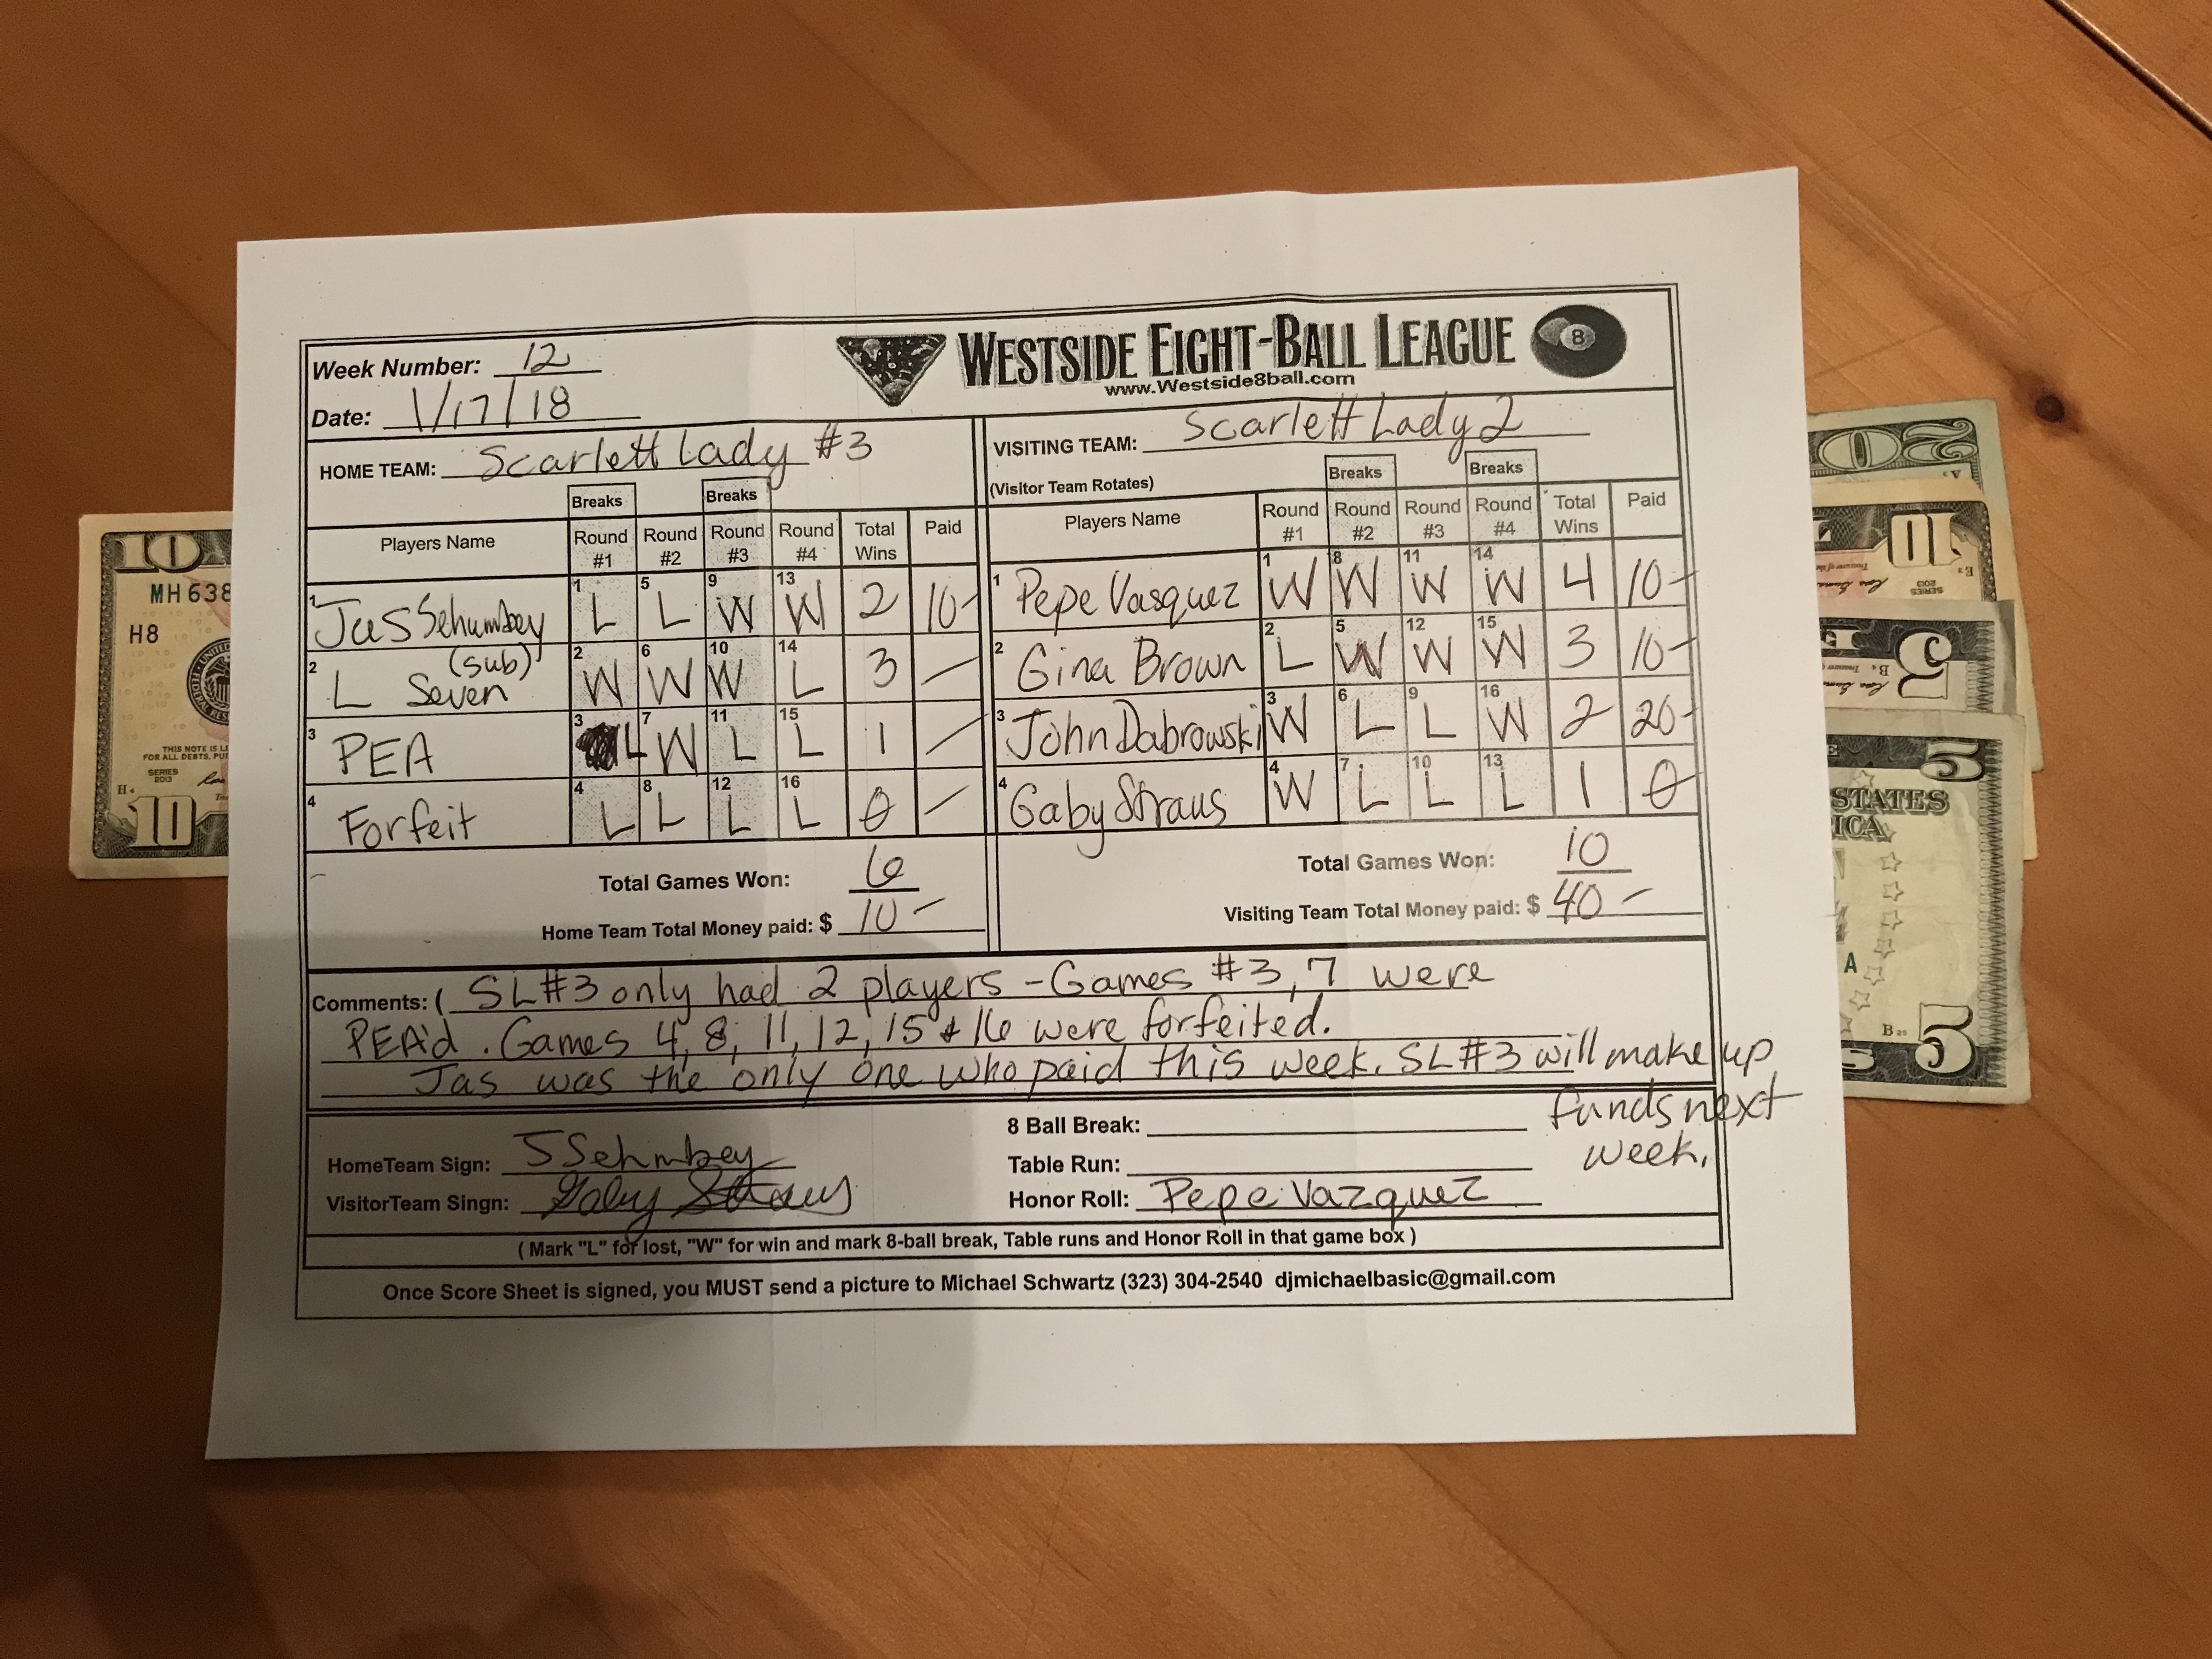 Week Number: 12
Date: 1/17/18
WESTSIDE EIGHT-BALL LEAGUE
www.Westside8ball.com
8
HOME TEAM: Scarlett Lady #3
VISITING TEAM: Scarlett Lady 2
(Visitor Team Rotates)
Breaks Breaks
Breaks Breaks
Players Name Round #1 Round #2 Round #3 Round #4 Total Wins Paid
1 Jas Sehmbey 1 L 5 L 9 W 13 W 2 10-
2 L Seven (sub) 2 W 6 W 10 W 14 L 3 —
3 PEA 3 L 7 W 11 L 15 L 1 —
4 Forfeit 4 L 8 L 12 L 16 L 0 —
Total Games Won: 6
Home Team Total Money paid: $ 10 -
Players Name Round #1 Round #2 Round #3 Round #4 Total Wins Paid
1 Pepe Vasquez 1 W 8 W 11 W 14 W 4 10-
2 Gina Brown 2 L 5 W 12 W 15 W 3 10-
3 John Dabrowski 3 W 6 L 9 L 16 W 2 20-
4 Gaby Straus 4 W 7 L 10 L 13 L 1 0
Total Games Won: 10
Visiting Team Total Money paid: $ 40 -
Comments: ( SL#3 only had 2 players - Games #3, 7 were
PEA'd. Games 4, 8, 11, 12, 15 & 16 were forfeited.
Jas was the only one who paid this week. SL#3 will make up
funds next
week.
HomeTeam Sign: JSehmbey
VisitorTeam Singn: Gaby Straus
8 Ball Break:
Table Run:
Honor Roll: Pepe Vazquez
( Mark "L" for lost, "W" for win and mark 8-ball break, Table runs and Honor Roll in that game box )
Once Score Sheet is signed, you MUST send a picture to Michael Schwartz (323) 304-2540 djmichaelbasic@gmail.com
10
MH 638
H8
THIS NOTE IS LE
FOR ALL DEBTS, PU
SERIES
2013
10
20
10
SERIES
2013
5
5
STATES
ICA
A
5